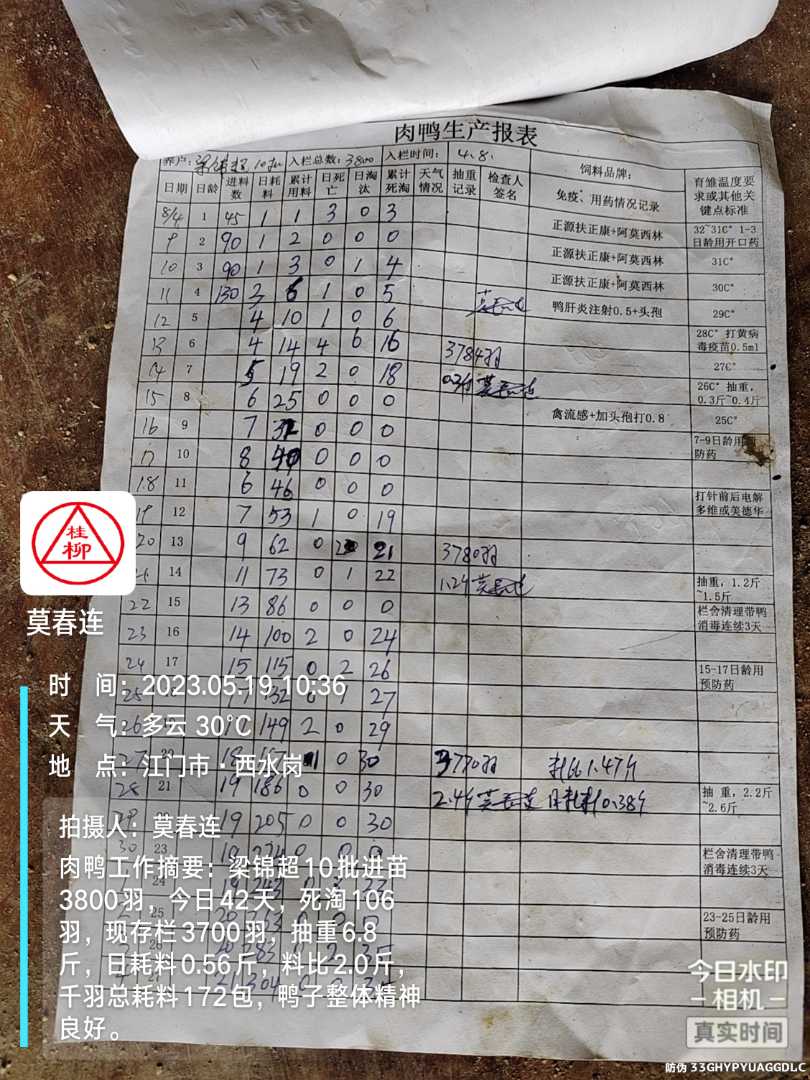 肉鸭生产报表
养户: 梁锦超 10批 入栏总数: 3800 入栏时间: 4.8. 饲料品牌:
日期 日龄 进料数 日耗料 累计用料 日死亡 日淘汰 累计死淘 天气情况 抽重记录 检查人签名 免疫、用药情况记录 育雏温度要求或其他关键点标准
8/4 1 45 1 1 3 0 3 正源扶正康+阿莫西林 32~31C° 1-3日龄用开口药
9 2 90 1 2 0 0 0 正源扶正康+阿莫西林 31C°
10 3 90 1 3 0 1 4 正源扶正康+阿莫西林 30C°
11 4 130 3 6 1 0 5 莫春连 鸭肝炎注射0.5+头孢 29C°
12 5 4 10 1 0 6 28C° 打黄病毒疫苗0.5ml
13 6 4 14 4 6 16 3784羽 27C°
14 7 5 19 2 0 18 莫春连 26C° 抽重,0.3斤~0.4斤
15 8 6 25 0 0 0 禽流感+加头孢打0.8 25C°
16 9 7 32 0 0 0 7-9日龄用预防药
17 10 8 40 0 0 0
18 11 6 46 0 0 0 打针前后电解多维或美德华
19 12 7 53 1 0 19
20 13 9 62 0 2 21 3780羽
21 14 11 73 0 1 22 1.2斤 莫春连 抽重,1.2斤~1.5斤
22 15 13 86 0 0 0 栏舍清理带鸭消毒连续3天
23 16 14 100 2 0 24
24 17 15 115 0 2 26 15-17日龄用预防药
25 132 0 27
26 149 2 0 29
27 20 18 1 0 30 3770羽 料比1.47斤
28 21 19 186 0 0 30 2.4斤 莫春连 日耗料0.38斤 抽重,2.2斤~2.6斤
19 205 0 0 30
30 23 19 224 0 0 0 栏舍清理带鸭消毒连续3天
24 19 243
25 20 263 23-25日龄用预防药
283 2 35
304
桂柳
莫春连
时 间: 2023.05.19 10:36
天 气: 多云 30℃
地 点: 江门市·西水岗
拍摄人: 莫春连
肉鸭工作摘要: 梁锦超10批进苗
3800羽, 今日42天, 死淘106
羽, 现存栏3700羽, 抽重6.8
斤, 日耗料0.56斤, 料比2.0斤,
千羽总耗料172包, 鸭子整体精神
良好。
今日水印
相机
真实时间
防伪 33GHYPYUAGGDLC